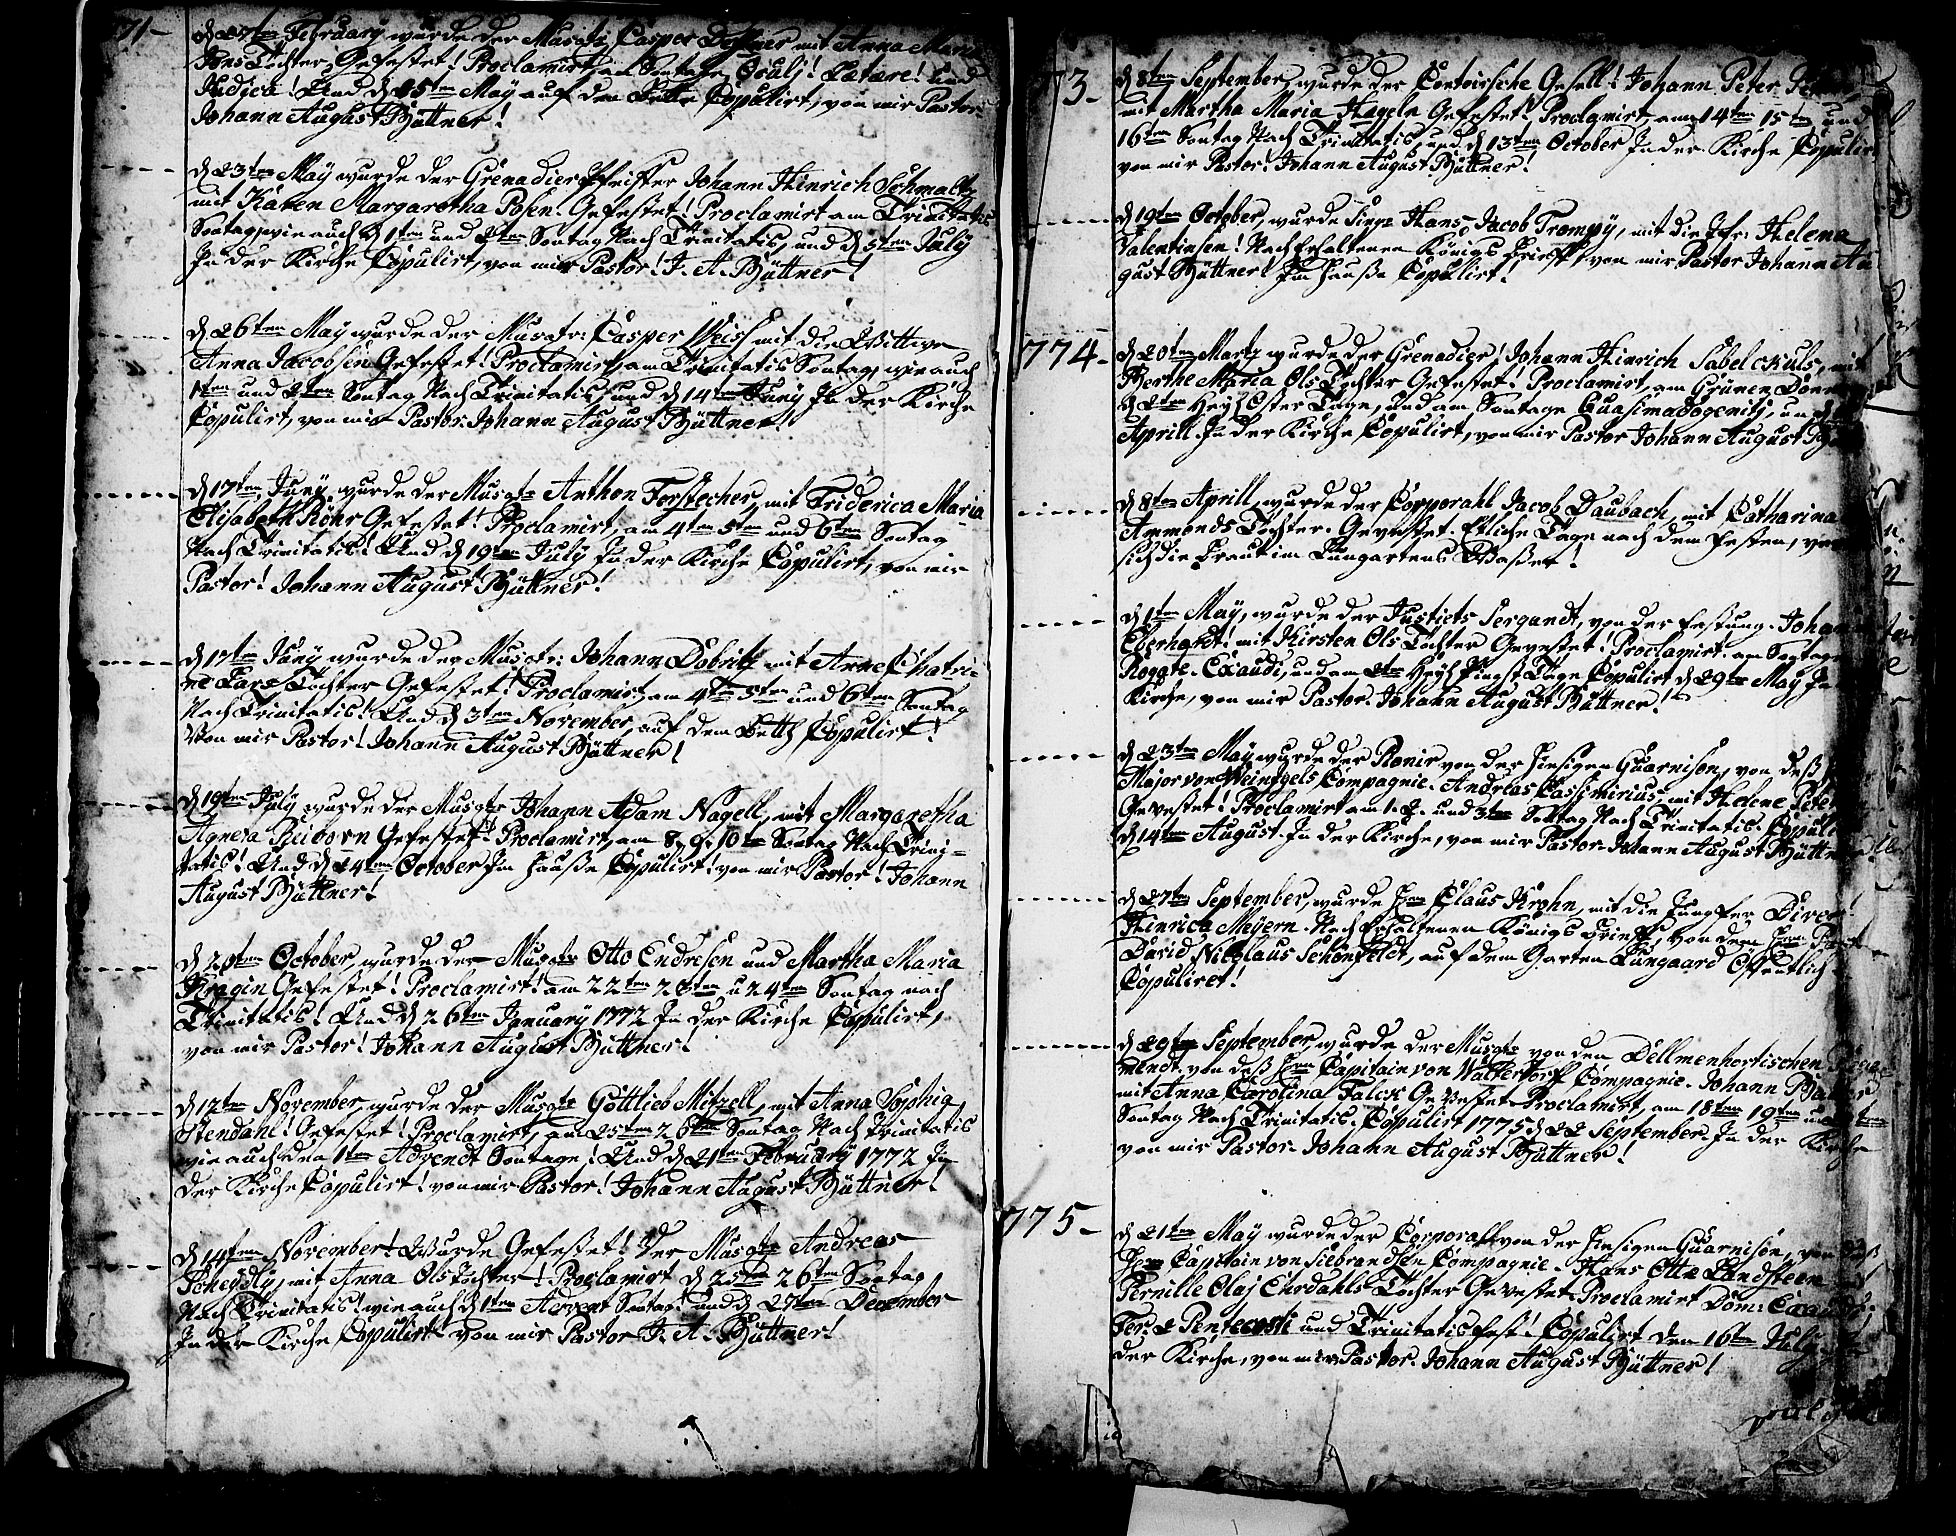 71-
d 27ten February wurde der Musqtr Casper Deßner mit Anna Maria
Jens Tochter, Gefestet! Proclamirt, am Sontage Oculj! Lætare! und
Judica! Und d 15ten May auf den Bette Copulirt, von mir Pastor
Johann August Büttner!
d 23ten May wurde der Grenadier Pfeiffer Johann Hinrich Schmaltz
mit Karen Margaretha Posen. Gefestet! Proclamirt am Trinitatis
Sontag, wie auch d 1ten und 2ten Sontag Nach Trinitatis, und d 5ten July
In der Kirche Copulirt, von mir Pastor! J. A. Büttner!
d 26ten May wurde der Musqtr: Casper Weiss mit die Wittwe
Anna Jacobsen Gefestet! Proclamirt, am Trinitatis Sontag, wie auch
1ten und 2ten Sontag Nach Trinitatis, und d 14ten Juny In der Kirche
Copulirt, von mir Pastor. Johann August Büttner!
d 17ten Juny wurde der Musqtr Anthon Forstecher, mit Friderica Maria
Elisabeth Röhr Gefestet! Proclamirt, am 4ten 5ten und 6ten Sontag
Nach Trinitatis! Und d 19ten July In der Kirche Copulirt, von mir
Pastor! Johann August Büttner!
d 17ten Juny wurde der Musqtr: Johann Dobritz mit Anne Chatri-
ne Lars Tochter Gefestet! Proclamirt, am 4ten 5ten und 6ten Sontag
Nach Trinitatis! Und d 3ten November, auf dem Bette Copulirt!
Von mir Pastor! Johann August Büttner!
d 19ten July wurde der Musqtr Johann Adam Nagell, mit Margaretha
Agnesa Reiborn Gefestet! Proclamirt, am 8, 9. 10ten Sontag Nach Trini-
tatis! Und d 24ten October Im Hauße Copulirt! von mir Pastor! Johann
August Büttner!
d 20ten October, wurde der Musqtr Otto Endresen und Martha Maria
Kragin Gefestet! Proclamirt! am 22ten 23ten u 24ten Sontag nach
Trinitatis! Und d 26ten January 1772 In der Kirche Copulirt,
von mir Pastor! Johann August Büttner!
d 12ten November, wurde der Musqtr Gottlieb Mitzell, mit Anna Sophia
Stendahl! Gefestet! Proclamirt, am 25ten 26ten Sontag Nach Trinitatis
wie auch den 1ten Advendt Sontage! Und d 21ten February 1772 In
der Kirche Copulirt! von mir Pastor! Johann August Büttner!
d 14ten November! Wurde Gefestet! Der Musqtr Andreas
Scheydly, mit Anna Ols Tochter! Proclamirt d 25ten 26ten Sontag
Nach Trinitatis! wie auch d 1ten Advent Sontag! und d 27ten December
In der Kirche Copulirt! von mir Pastor J. A. Büttner!
73-
d 8ten September, wurde der Contoirische Gesell! Johann Peter
mit Martha Maria Hageln Gefestet! Proclamirt, am 14ten 15ten und
16ten Sontag Nach Trinitatis, und d 13ten October In der Kirche Copulirt
von mir Pastor! Johann August Büttner!
d 19ten October, wurde Sinr Hans Jacob Trompy, mit die Jfr: Helena
Valentinsen! Nach Erhaltenen Königs Brieff, von mir Pastor Johann Au
gust Büttner Im Hauße Copulirt!
774-
d 20ten Martz wurde der Grenadier! Johann Hinrich Sabelckuls, mit
Berthe Maria Ols Tochter Gefestet! Proclamirt, am Grünen Donner
d 2ten Heyl Oster Tage, und am Sontage Quasimodogenitj, und d
Aprill. In der Kirche Copulirt, von mir Pastor Johann August
d 8ten Aprill, wurde der Corporahl Jacob Daubach, mit Catharina
Ammonds Tochter. Gevestet. Etliche Tage nach dem festen,
sich die Braut im Lungartens Waßer!
d 1ten May, wurde der Justiets Sergandt, von der Festung. Johan
Eberhardt! mit Kirsten Ols Tochter Gevestet! Proclamirt. am Sontage
Rogate. Exaudi, und am 2ten Heyl Pingst Tage Copulirt d 29ten May In
Kirche, von mir Pastor. Johann August Büttner!
d 23ten May wurde der Pionir von der Hiesigen Guarnison, von deß
Major von Weinigels Compagnie. Andreas Cassimirius mit Helene Peter
Gevestet! Proclamirt am 1. 2. und 3ten Sontag Nach Trinitatis. Copuli
d 14ten August. In der Kirche, von mir Pastor. Johann August Büttner
d 27ten September, wurde Hrn Claus Krohn, mit die Jungfer Direc
Hinrica Meyern. Nach Erhaltenen Königs Brieff, von dem Hrn Past
David Nicolaus Schönfeldt, auf dem Garten Lungaard Offentlich
Copuliret!
d 29ten September wurde der Musqtr von den Dellmenhortischen
mendt. von deß Hrn Capitain von Waltersdorff Compagnie. Johann
mit Anna Carolina Falck Gevestet. Proclamirt, am 18ten 19ten und
Sontag Nach Trinitatis. Copulirt 1775 d 22 September. In der Kirche
von mir Pastor. Johann August Büttner!
775-
d 21ten May wurde der Corporall von der Hiesigen Guarnison, von deß
Hern Capitain von Siebrandsen Compagnie. Hans Otto Landsteen
Pernille Olaj Ehrdahls Tochter Gevestet. Proclamirt Dom: Exaudi.
Fer: 2 Pentecosti und Trinitatis fest! Copulirt den 16ten July.
der Kirche, von mir Pastor. Johann August Büttner!